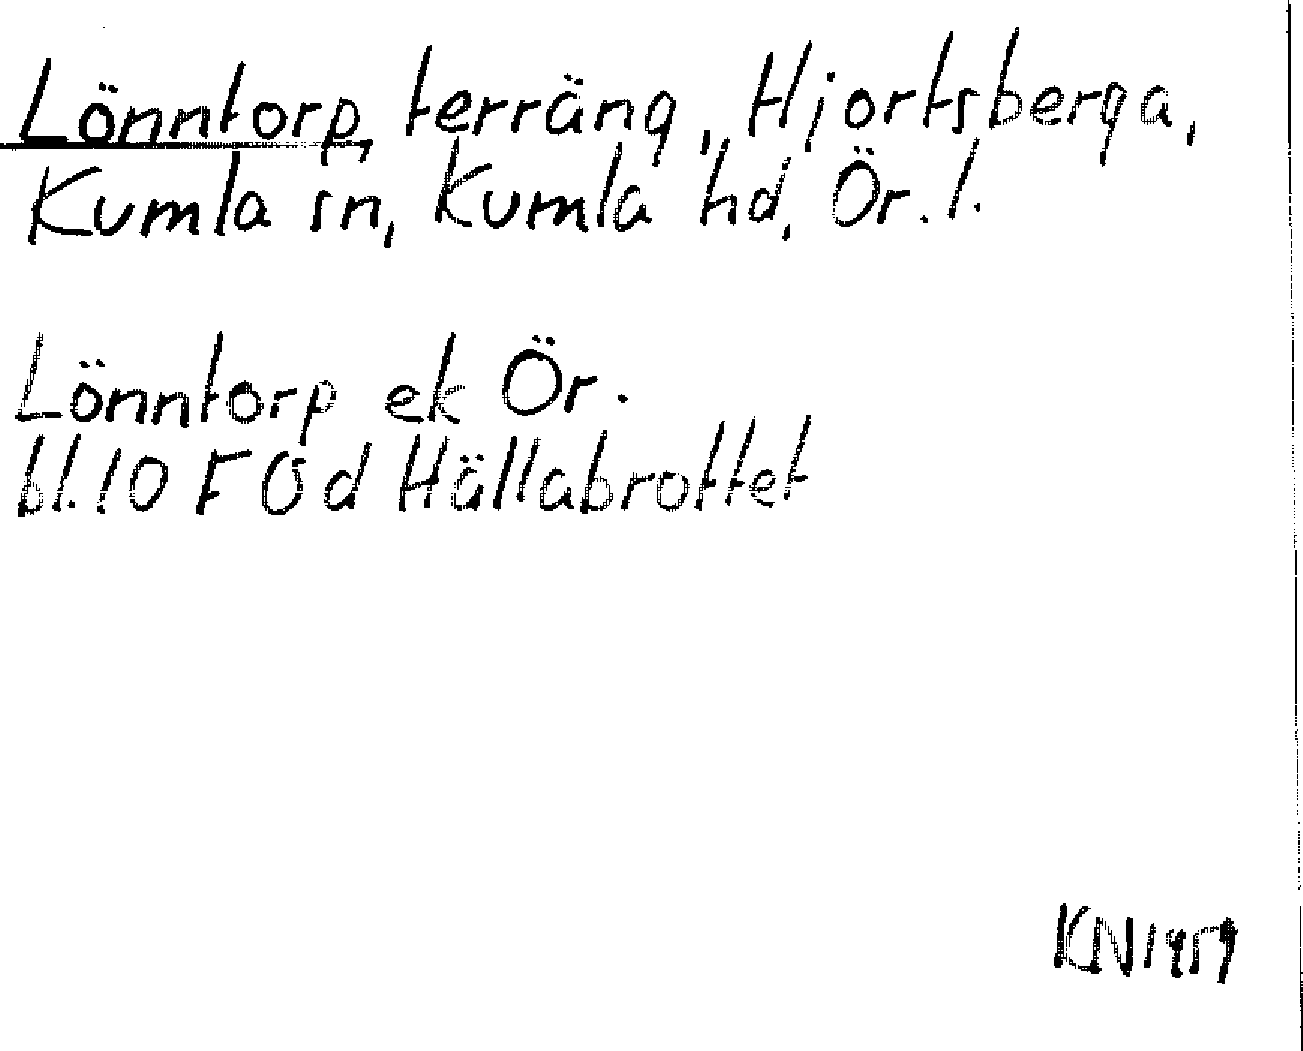 Lönntorp, terräng, Hjortsberga,
Kumla sn, Kumla hd, Ör. l.
Lönntorp ek Ör.
bl. 10 F Öd Hällabrottet
KN 1959